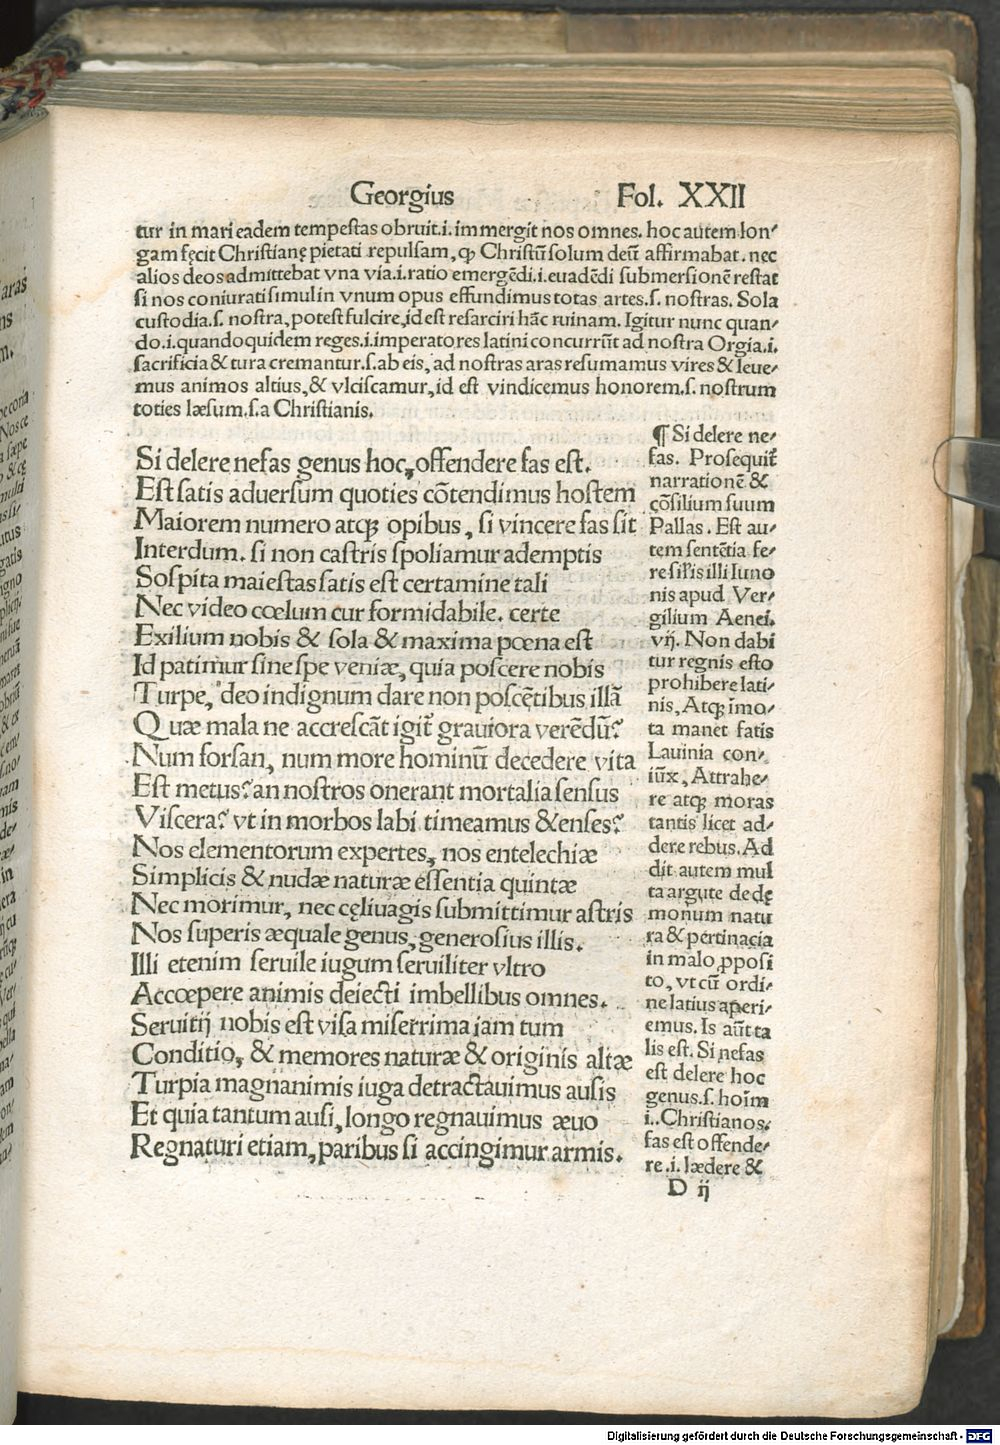 Georgius Fol. XXII
tur in mari eadem tempestas obruit.i. immergit nos omnes. hoc autem lon/
gam fęcit Christianę pietati repulsam, ꝙ Christū solum deū affirmabat. nec
alios deos admittebat vna via.i.ratio emergēdi.i.euadēdi submersionē restat
si nos coniurati simul in vnum opus effundimus totas artes.s. nostras. Sola
custodia.s. nostra, potest fulcire, id est resarciri hāc ruinam. Igitur nunc quan/
do.i.quandoquidem reges.i.imperatores latini concurrūt ad nostra Orgia.i.
sacrificia & tura cremantur.s.ab eis, ad nostras aras resumamus vires & leue/
mus animos altius, & vlciscamur, id est vindicemus honorem.s. nostrum
toties læsum.s.a Christianis.
Si delere nefas genus hoc, offendere fas est.
Est satis aduersum quoties cōtendimus hostem
Maiorem numero atqꝫ opibus, si vincere fas sit
Interdum. si non castris spoliamur ademptis
Sospita maiestas satis est certamine tali
Nec video cœlum cur formidabile. certe
Exilium nobis & sola & maxima pœna est
Id patimur sine spe veniæ, quia poscere nobis
Turpe, deo indignum dare non poscētibus illā
Quæ mala ne accrescāt igit̃ grauiora verēdū?
Num forsan, num more hominū decedere vita
Est metus? an nostros onerant mortalia sensus
Viscera? vt in morbos labi timeamus & enses?
Nos elementorum expertes, nos entelechiæ
Simplicis & nudæ naturæ essentia quintæ
Nec morimur, nec cęliuagis submittimur astris
Nos superis æquale genus, generosius illis.
Illi etenim seruile iugum seruiliter vltro
Accœpere animis deiecti imbellibus omnes.
Seruitij nobis est visa miserrima iam tum
Conditio, & memores naturæ & originis altæ
Turpia magnanimis iuga detractauimus ausis
Et quia tantum ausi, longo regnauimus æuo
Regnaturi etiam, paribus si accingimur armis.
¶ Si delere ne/
fas. Prosequit̃
narrationē &
cōsilium suum
Pallas. Est au/
tem sentētia fe/
re sił̃is illi Iuno
nis apud Ver/
gilium Aenei.
vij. Non dabi
tur regnis esto
prohibere lati/
nis, Atqꝫ īmo/
ta manet fatis
Lauinia con/
iūx, Attrahe/
re atqꝫ moras
tantis licet ad/
dere rebus. Ad
dit autem mul
ta argute de dę
monum natu
ra & pertinacia
in malo ꝓposi
to, vt cū ordi/
ne latius aperi/
emus. Is aūt ta
lis est. Si nefas
est delere hoc
genus.s. hoīm
i. Christianos.
fas est offende/
re .i. lædere &
D ij
Digitalisierung gefördert durch die Deutsche Forschungsgemeinschaft - DFG